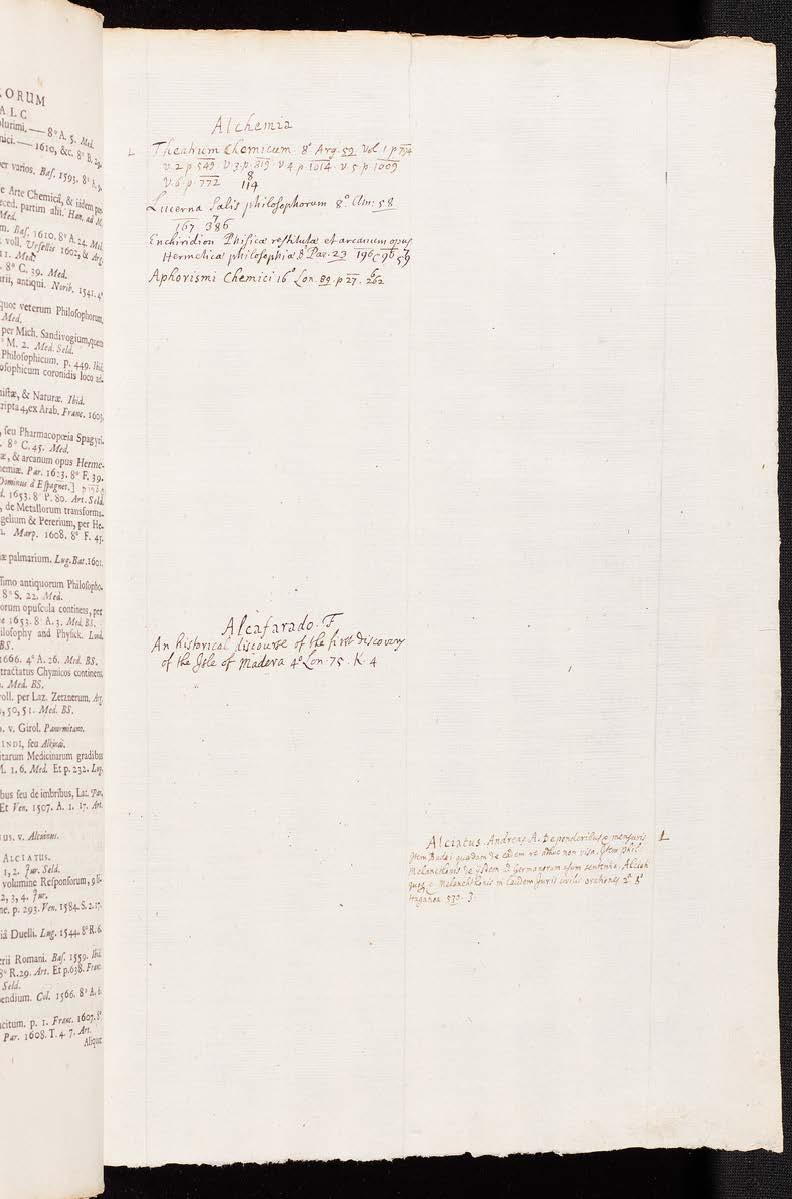 LORUM
ALC
plurimi, — 8° A. 5. Med.
nici. — 1610, &c. 8° B. 29.
per varios. Bas. 1593. 8° h. 9.
e Arte Chemicâ, & iisdem
eced. partim alii. Han. ad M.
Med.
m. Bas. 1610. 8° A. 24. Med.
. voll. Ursellis 1602, & Arg.
11. Med.
. 8° C. 39. Med.
arii, antiqui. Norib. 1541. 4°
quot veterum Philosophorum,
Med.
per Mich. Sandivogium, quem
° M. 2. Med. Seld.
Philosophicum. p. 449. Ibid.
osophicum coronidis loco ad-
nistæ, & Naturæ. Ibid.
ripta 4, ex Arab. Franc. 1603.
, seu Pharmacopœia Spagyri-
. 8° C. 45. Med.
æ, & arcanum opus Herme-
hemiæ. Par. 1623. 8° F. 39.
Dominus d'Espagnet.]
d. 1653. 8° P. 80. Art. Seld.
, de Metallorum transforma-
gelium & Pererium, per He-
. Marp. 1608. 8° F. 45.
iæ palmarium. Lug. Bat. 1601.
ssimo antiquorum Philosopho-
8° S. 22. Med.
orum opuscula continens, per
1653. 8° A. 3. Med. BS.
ilosophy and Physick. Lond.
BS.
1666. 4° A. 26. Med. BS.
tractatus Chymicos continens
. Med. BS.
voll. per Laz. Zetznerum. Arg.
, 50, 51. Med. BS.
. v. Girol. Panormitano.
INDI, seu Alkindi.
itarum Medicinarum gradibus
M. 1. 6. Med. Et p. 232. Lug.
bus seu de imbribus, Lat. Par.
Et Ven. 1507. A. 1. 17. Art.
US. v. Alcuinus.
ALCIATUS.
1, 2. Jur. Seld.
volumine Responsorum, 9 li-
2, 3, 4. Jur.
ne. p. 293. Ven. 1584. S. 2. 17.
iâ Duelli. Lug. 1544. 8° R. 6.
erii Romani. Bas. 1559. Ibid.
8° R. 29. Art. Et p. 638. Franc.
Seld.
pendium. Col. 1566. 8° A. 6.
acitum. p. 1. Franc. 1607. 8°
Par. 1608. T. 4. 7. Art.
Aliquot
Alchemia
L Theatrum Chemicum 8° Arg. 59. Vol 1 p 794
v. 2 p 549 v 3. p. 819 v 4 p 1014 v 5 p. 1009
v. 6. p. 772 8 114
Lucerna Salis philosophorum 8°. Am: 58
167. 7 386
Enchiridion Phisicæ restitutæ et arcanum opus
Hermeticæ philosophiæ 8° Par. 23 196
Aphorismi Chemici 16° Lon 89. p 27. 6 262
Alcafarado. F
An historical discourse of the first discovery
of the Isle of Madera 4° Lon 75. K. 4
Alciatus. Andreas A. De ponderibus & mensuris L
Item Budei quædam de eadem re adhuc non visa. Item Phil
Melancthonis de iisdem ad Germanorum usum sententia. Alciati
Melancthonis in laudem Juris civilis orationes 2æ 8°
Haganoæ 530. J.